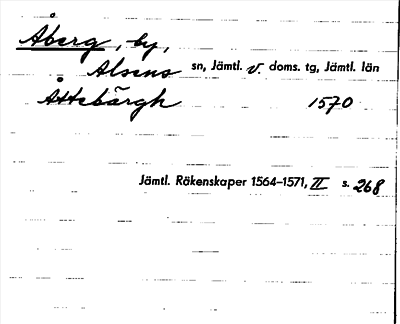 Åberg, by,
Alsens sn, Jämtl. v. doms. tg, Jämtl. län
Åttebärgh 1570
Jämtl. Räkenskaper 1564–1571, II s. 268